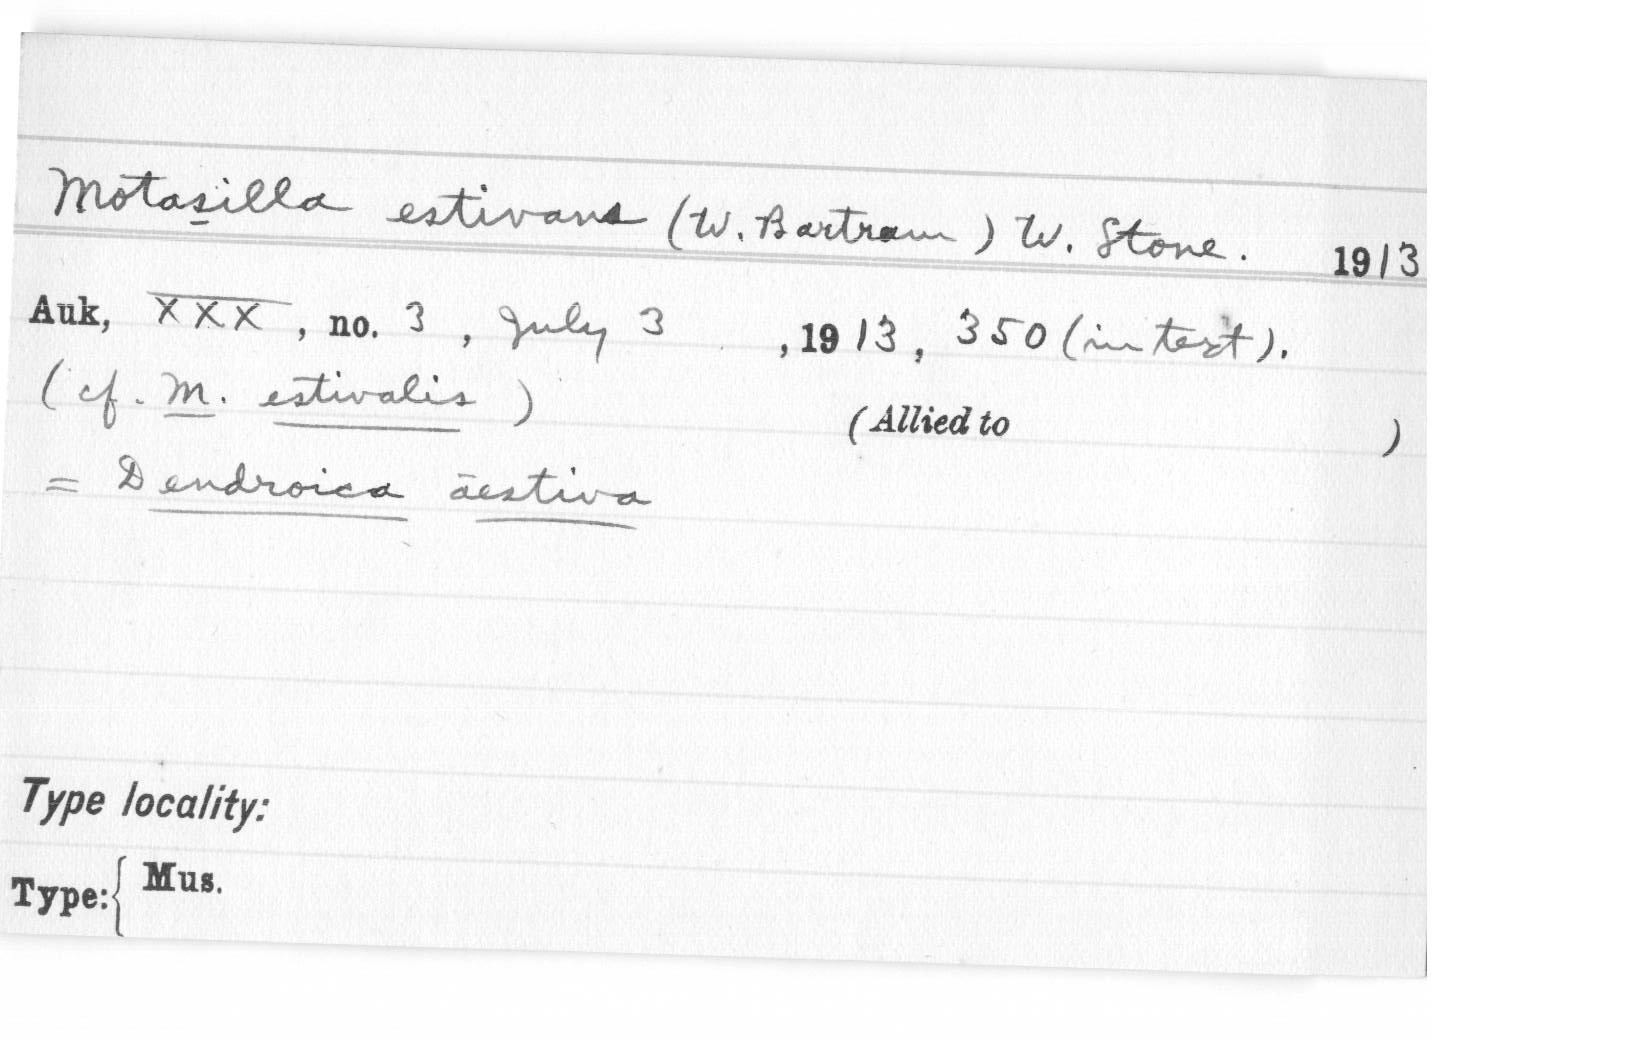 Motasilla estivans (W. Bartram) W. Stone. 1913
Auk, XXX, no. 3, July 3, 1913, 350 (in text).
(cf. M. estivalis)
(Allied to )
= Dendroica aestiva
Type locality:
Type: { Mus.